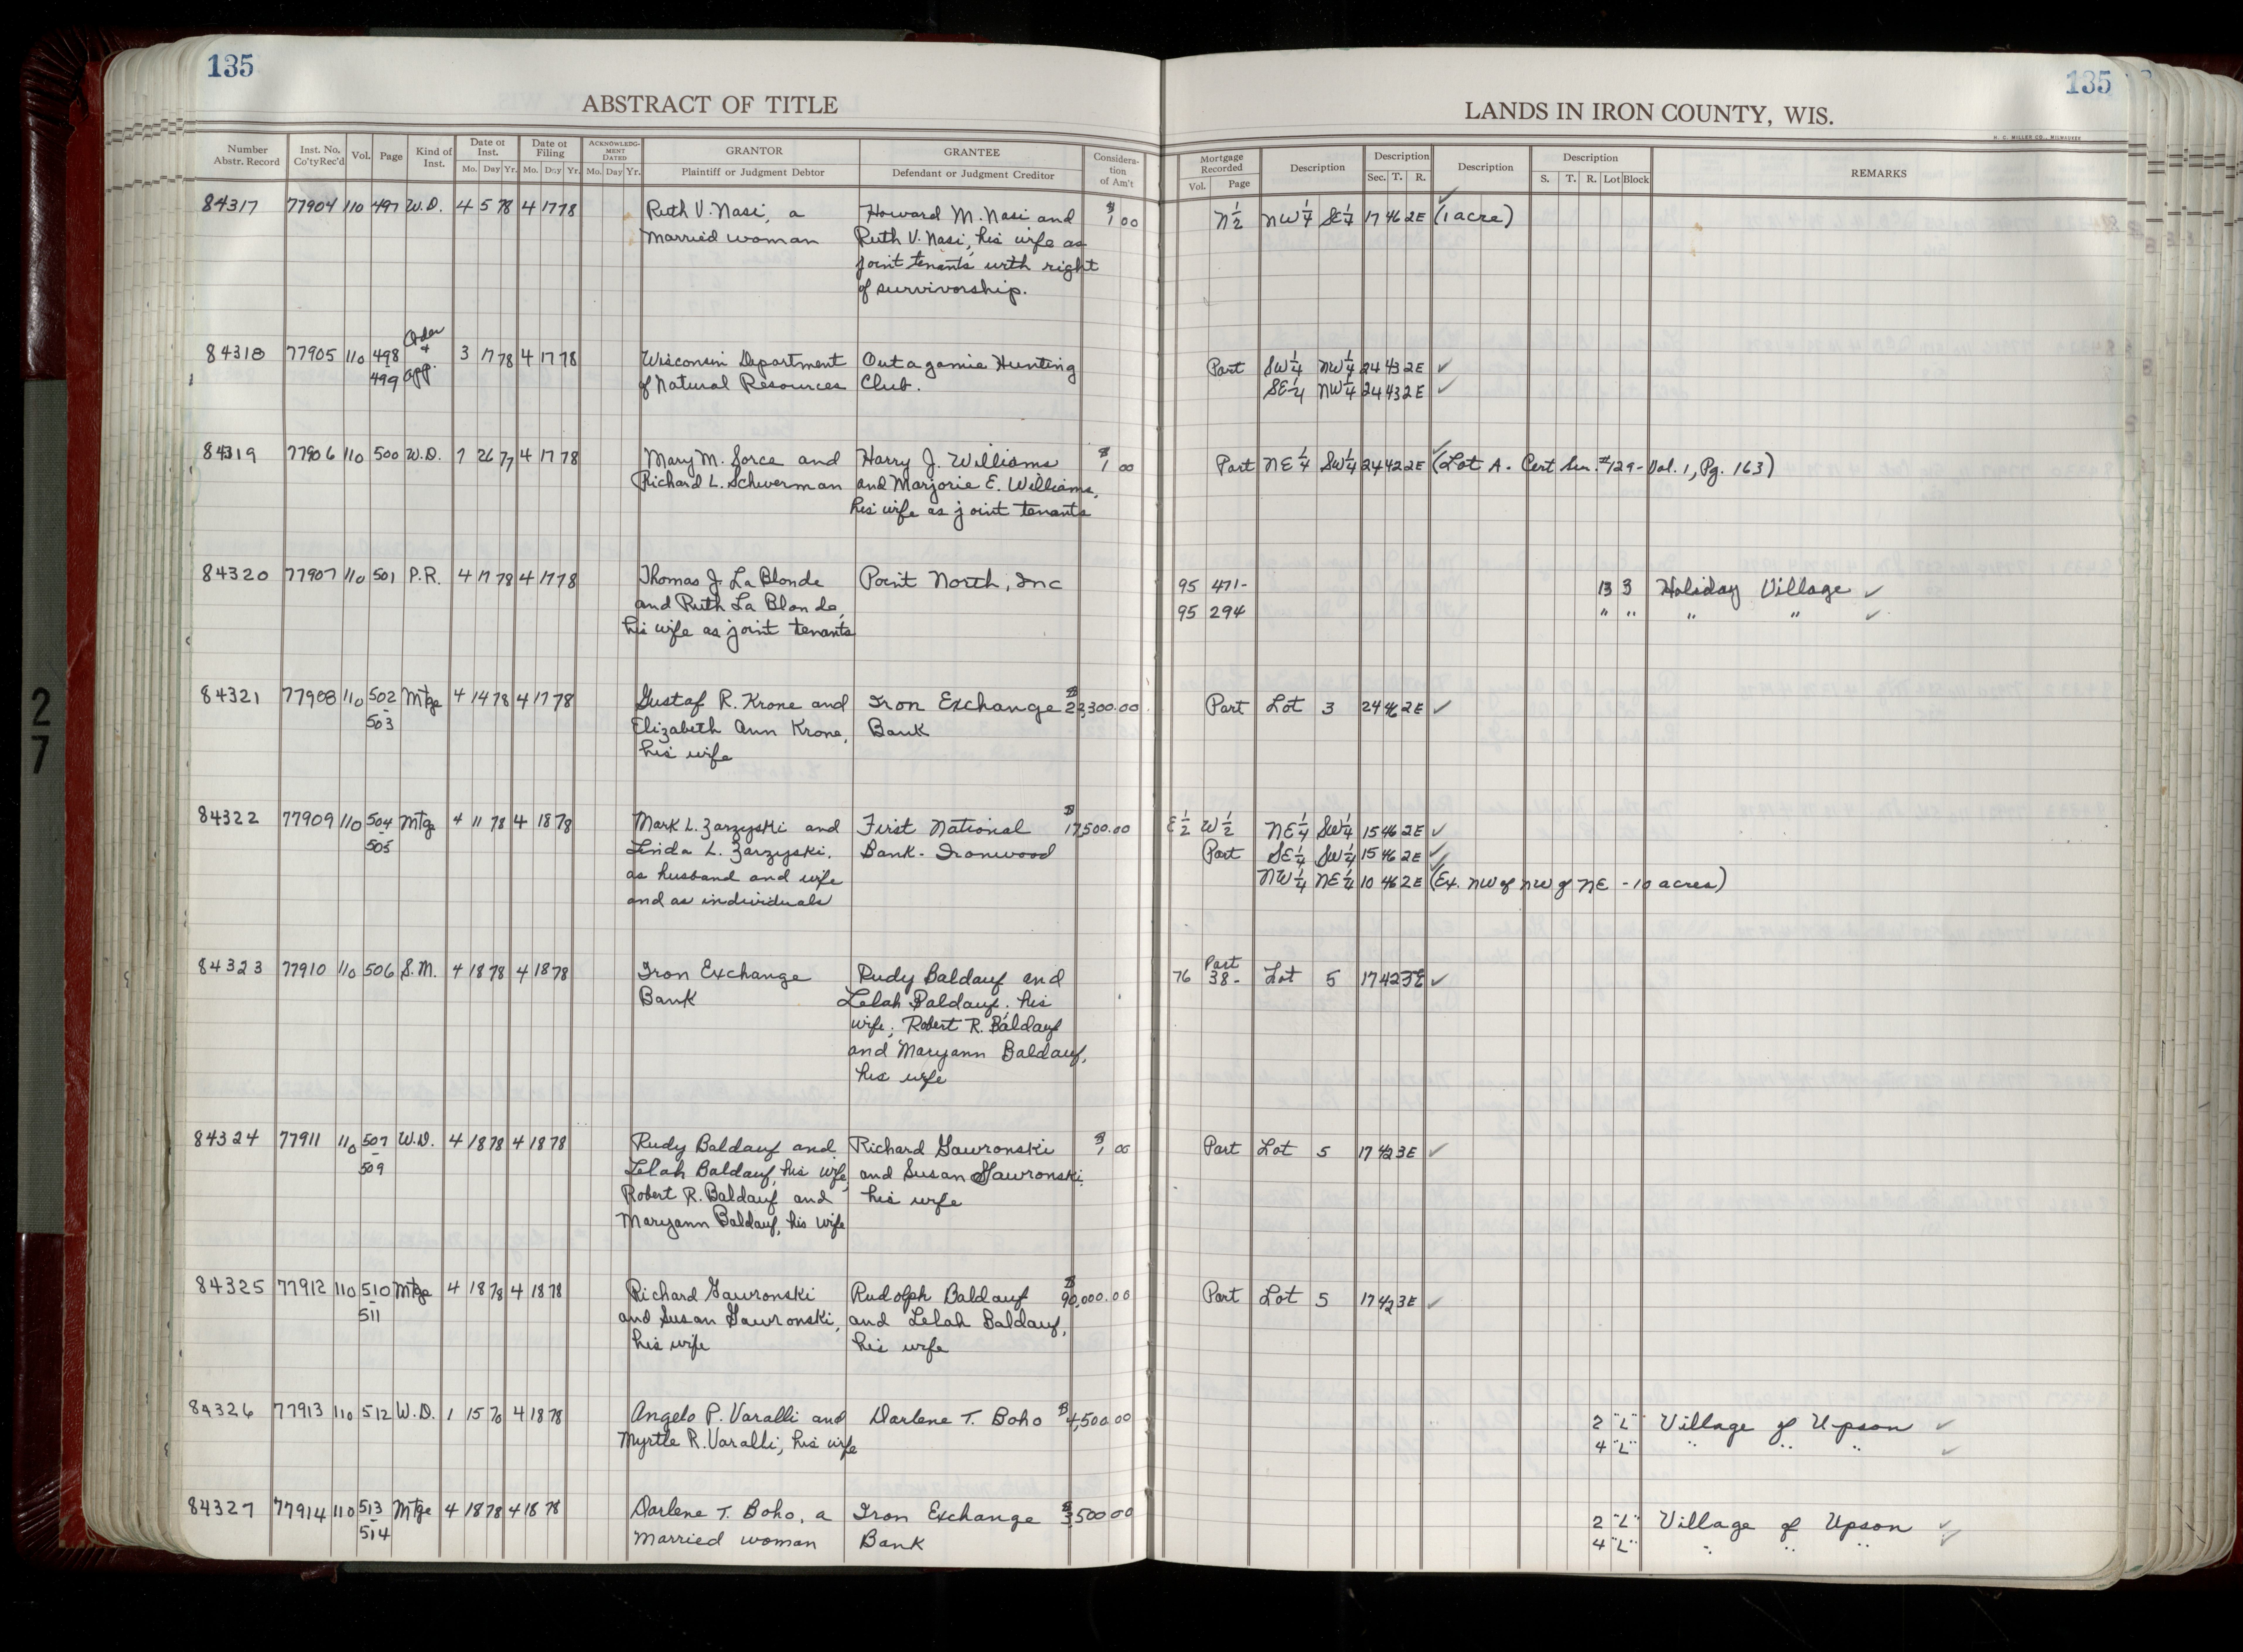 135
135
ABSTRACT OF TITLE
LANDS IN IRON COUNTY, WIS.
H. C. MILLER CO., MILWAUKEE
Number Abstr. Record | Inst. No. Co'ty Rec'd | Vol. | Page | Kind of Inst. | Date of Inst. Mo. Day Yr. | Date of Filing Mo. Day Yr. | ACKNOWLEDGMENT DATED Mo. Day Yr. | GRANTOR Plaintiff or Judgment Debtor | GRANTEE Defendant or Judgment Creditor | Consideration of Am't | Mortgage Recorded Vol. Page | Description | Description Sec. T. R. | Description | Description S. T. R. Lot Block | REMARKS
84317 77904 110 497 W.D. 4 5 78 4 17 78 Ruth V. Nasi, a Howard M. Nasi and $1 00 N 1/2 NW 1/4 SE 1/4 17 46 2E ✓ (1 acre)
Married woman Ruth V. Nasi, his wife as
joint tenants with right
of survivorship.
Order
84318 77905 110 498 + 3 17 78 4 17 78 Wisconsin Department Outagamie Hunting Part SW 1/4 NW 1/4 24 43 2E ✓
499 App. of Natural Resources Club. SE 1/4 NW 1/4 24 43 2E ✓
84319 77906 110 500 W.D. 7 26 77 4 17 78 Mary M. Sorce and Harry J. Williams $1 00 Part NE 1/4 SW 1/4 24 42 2E ✓ (Lot A - Cert Sur. #129 - Vol. 1, Pg. 163)
Richard L. Schwerman and Marjorie E. Williams,
his wife as joint tenants
84320 77907 110 501 P.R. 4 17 78 4 17 78 Thomas J. La Blonde Point North, Inc 95 471- 13 3 Holiday Village ✓
and Ruth La Blonde, 95 294 " " " " ✓
his wife as joint tenants
84321 77908 110 502 Mtge 4 14 78 4 17 78 Gustaf R. Krone and Iron Exchange $23,300.00 Part Lot 3 24 46 2E ✓
- 503 Elizabeth Ann Krone, Bank
his wife
84322 77909 110 504 Mtge 4 11 78 4 18 78 Mark L. Zarzyski and First National $17,500.00 E 1/2 W 1/2 NE 1/4 SW 1/4 15 46 2E ✓
- 505 Linda L. Zarzyski, Bank - Ironwood Part SE 1/4 SW 1/4 15 46 2E ✓
as husband and wife NW 1/4 NE 1/4 10 46 2E ✓ (Ex. NW of NW of NE - 10 acres)
and as individuals
84323 77910 110 506 S.M. 4 18 78 4 18 78 Iron Exchange Rudy Baldauf and 76 38- Part Lot 5 17 42 3E ✓
Bank Lelah Baldauf, his
wife; Robert R. Baldauf
and Maryann Baldauf,
his wife
84324 77911 110 507 W.D. 4 18 78 4 18 78 Rudy Baldauf and Richard Gawronski $1 00 Part Lot 5 17 42 3E ✓
- 509 Lelah Baldauf, his wife, and Susan Gawronski,
Robert R. Baldauf and his wife
Maryann Baldauf, his wife
84325 77912 110 510 Mtge 4 18 78 4 18 78 Richard Gawronski Rudolph Baldauf $90,000.00 Part Lot 5 17 42 3E ✓
- 511 and Susan Gawronski, and Lelah Baldauf,
his wife his wife
84326 77913 110 512 W.D. 1 15 70 4 18 78 Angelo P. Varalli and Darlene T. Boho $4,500.00 2 "L" Village of Upson ✓
Myrtle R. Varalli, his wife 4 "L" " " " ✓
84327 77914 110 513 Mtge 4 18 78 4 18 78 Darlene T. Boho, a Iron Exchange $3,500 00 2 "L" Village of Upson ✓
- 514 Married woman Bank 4 "L" " " " ✓
27